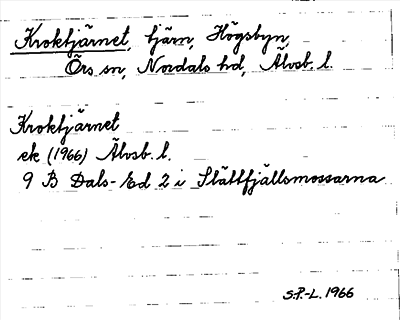 Kroktjärnet, tjärn, Högsbyn,
Örs sn, Nordals hd, Älvsb. l.
Kroktjärnet
ek (1966) Älvsb. l.
9 B Dals-Ed 2 i Slättfjällsmossarna
S.P.-L. 1966